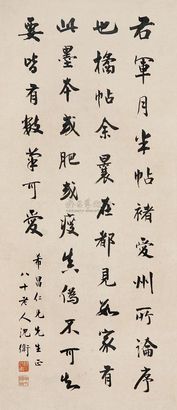 右軍月半帖褚愛州所論序
也橘帖余曩在都見數家有
此墨本或肥或瘦真偽不可
要皆有數筆可愛
希昌仁兄先生正
八十老人沈衛